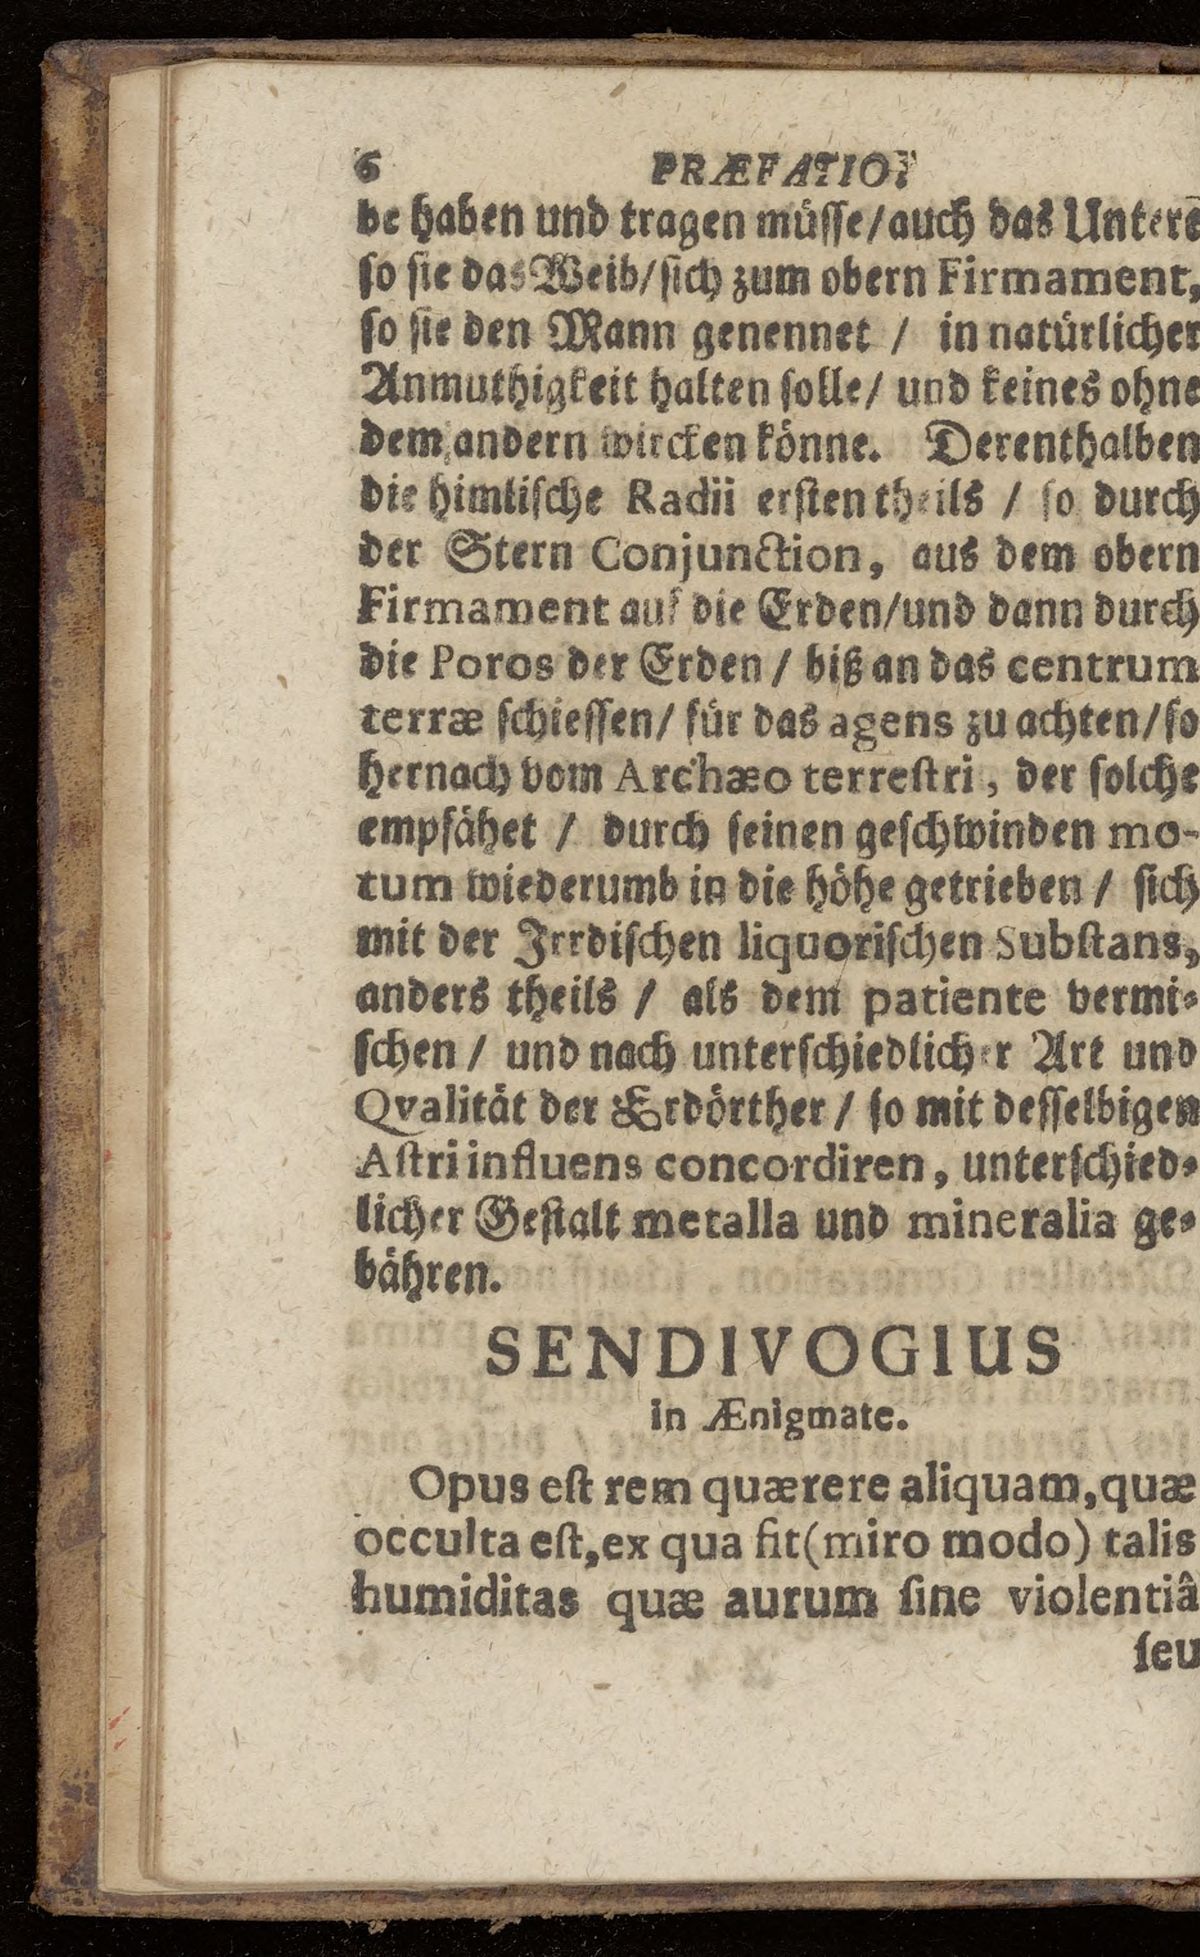 6 PRÆFATIO.
be haben und tragen müſſe/auch das Unterē
ſo ſie das Weib/ſich zum obern Firmament,
ſo ſie den Mann genennet / in natürlicher
Anmuthigkeit halten ſolle/ und keines ohne
dem andern wircken könne. Derenthalben
die himliſche Radii erſten theils / ſo durch
der Stern Conjunction, aus dem obern
Firmament auf die Erden/und dann durch
die Poros der Erden / biß an das centrum
terræ ſchieſſen/ für das agens zu achten/ſo
hernach vom Archæo terreſtri, der ſolche
empfähet / durch ſeinen geſchwinden mo-
tum wiederumb in die höhe getrieben / ſich
mit der Jrrdiſchen liquoriſchen Subſtans,
anders theils / als dem patiente vermi-
ſchen / und nach unterſchiedlicher Art und
Qvalität der Erdörther / ſo mit deſſelbigen
Aſtri influens concordiren, unterſchied-
licher Geſtalt metalla und mineralia ge-
bähren.
SENDIVOGIUS
in Ænigmate.
Opus eſt rem quærere aliquam,quæ
occulta eſt,ex qua fit(miro modo) talis
humiditas quæ aurum ſine violentiâ
ſeu